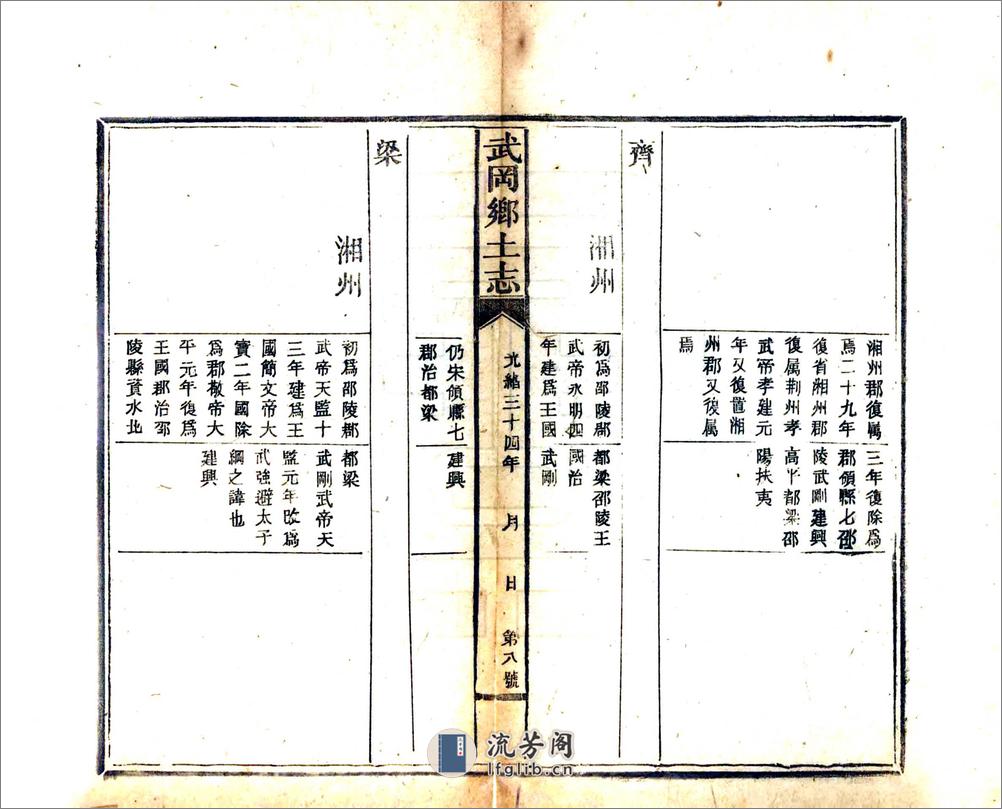 湘州郡復属
焉二十九年
復省湘州郡
復属荆州孝
武帝孝建元
年又復置湘
州郡又復属
焉
三年復除爲
郡領縣七邵
陵武剛建興
高平都梁邵
陽扶夷
齊
湘州
初爲邵陵郡
武帝永明四
年建爲王國
都梁邵陵王
國治
武剛
武岡鄉土志
光緒三十四年 月 日 第八號
仍朱領縣七
郡治都梁
建興
梁
湘州
初爲邵陵郡
武帝天監十
三年建爲王
國簡文帝大
寳二年國除
爲郡敬帝大
平元年復爲
王國郡治邵
陵縣資水北
都梁
武剛武帝天
監元年改爲
武強避太子
綱之諱也
建興
流芳阁
lfglib.cn